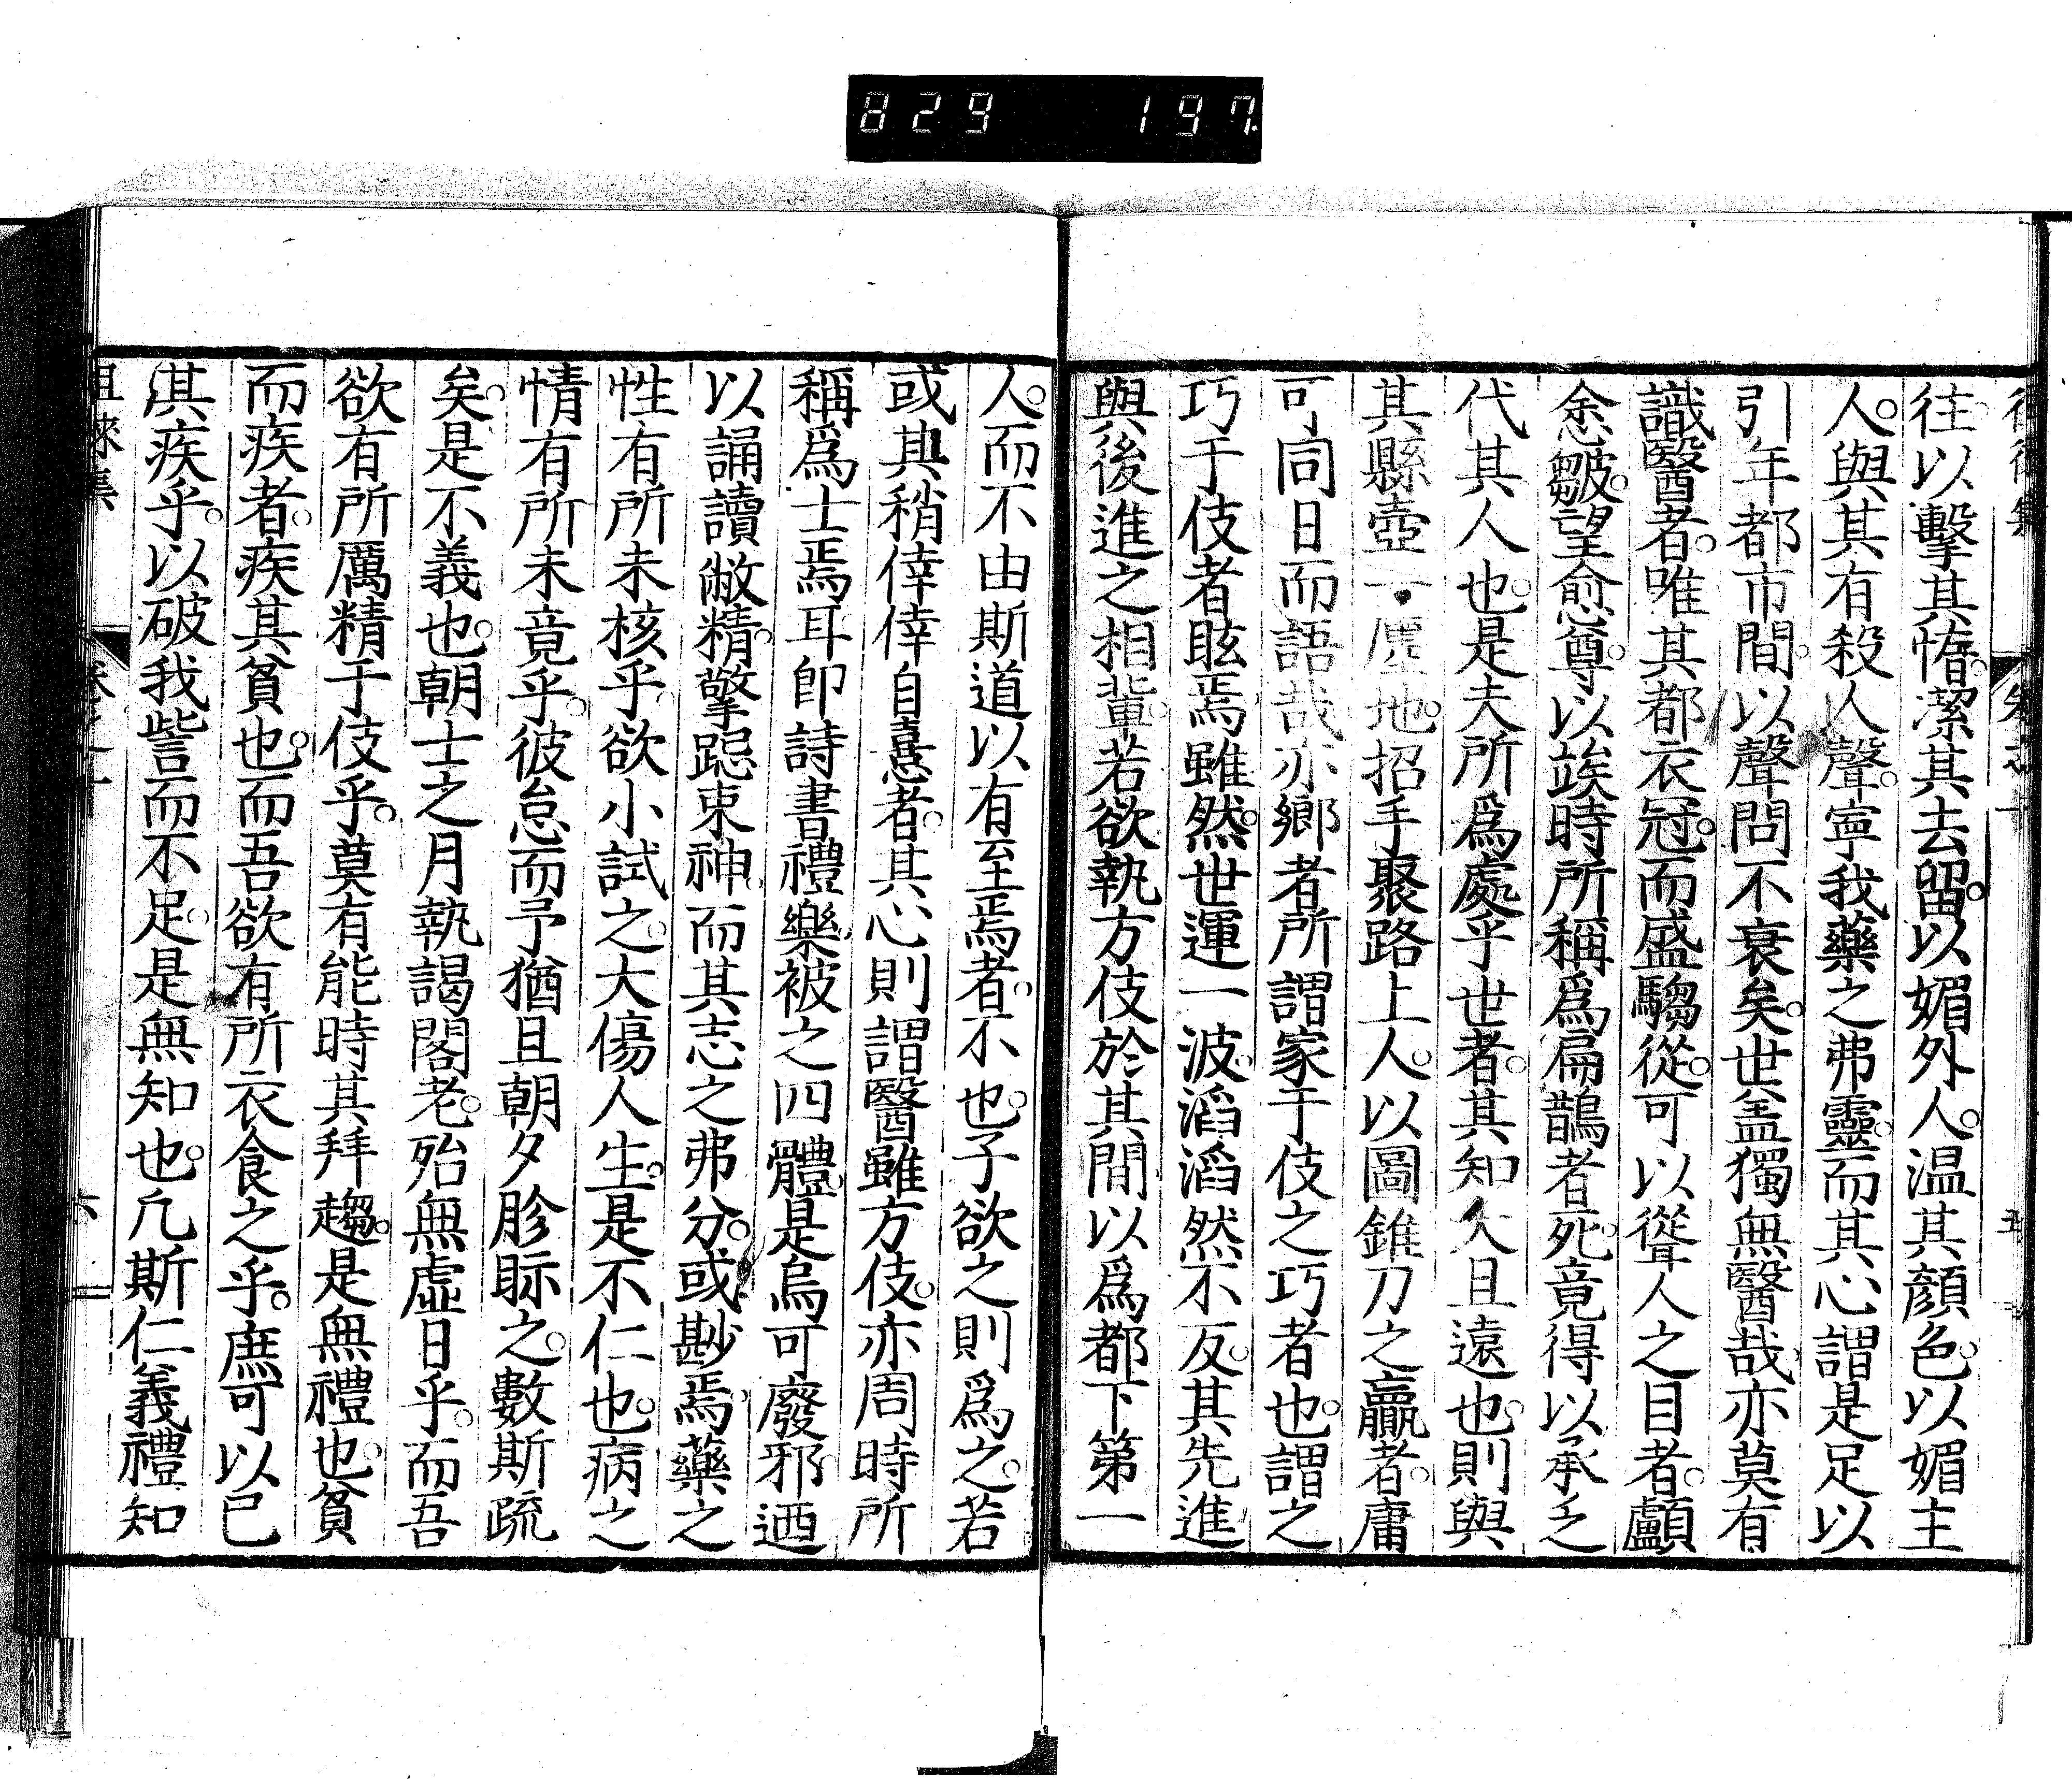 829 197
往以擊其惰。潔其去留。以媚外人。温其顏色。以媚主
人。與其有殺人聲。寧我藥之弗靈。而其心謂是足以
引年都市間。以聲問不衰矣。世盖獨無醫哉。亦莫有
識醫者。唯其都衣冠。而盛騶從。可以聳人之目者。顱
愈皺。望愈尊。以竢時所稱爲扁鵲者死。竟得以承乏
代其人也。是夫所爲處乎世者。其知人且遠也。則與
其縣壺一廛地。招手聚路上人。以圖錐刀之贏者。庸
可同日而語哉。亦鄉者所謂家于伎之巧者也。謂之
巧于伎者眩焉。雖然。世運一波。滔滔然不反。其先進
與後進之相軰。若欲執方伎於其間。以爲都下第一
人。而不由斯道以有至焉者。不也。子欲之則爲之。若
或其稍倖倖自憙者。其心則謂醫雖方伎。亦周時所
稱爲士焉耳。卽詩書禮樂被之四體。是烏可廢邪。迺
以誦讀敝精。擎跽束神。而其志之弗分。或尠焉。藥之
性有所未核乎。欲小試之。大傷人生。是不仁也。病之
情有所未竟乎。彼怠而予猶且朝夕胗眎之。數斯疏
矣。是不義也。朝士之月執謁閣老。殆無虛日乎。而吾
欲有所厲精于伎乎。莫有能時其拜趨。是無禮也。貧
而疾者。疾其貧也。而吾欲有所衣食之乎。庶可以已
其疾乎。以破我訾而不足。是無知也。凡斯仁義禮知
徂徠集
卷之十
六